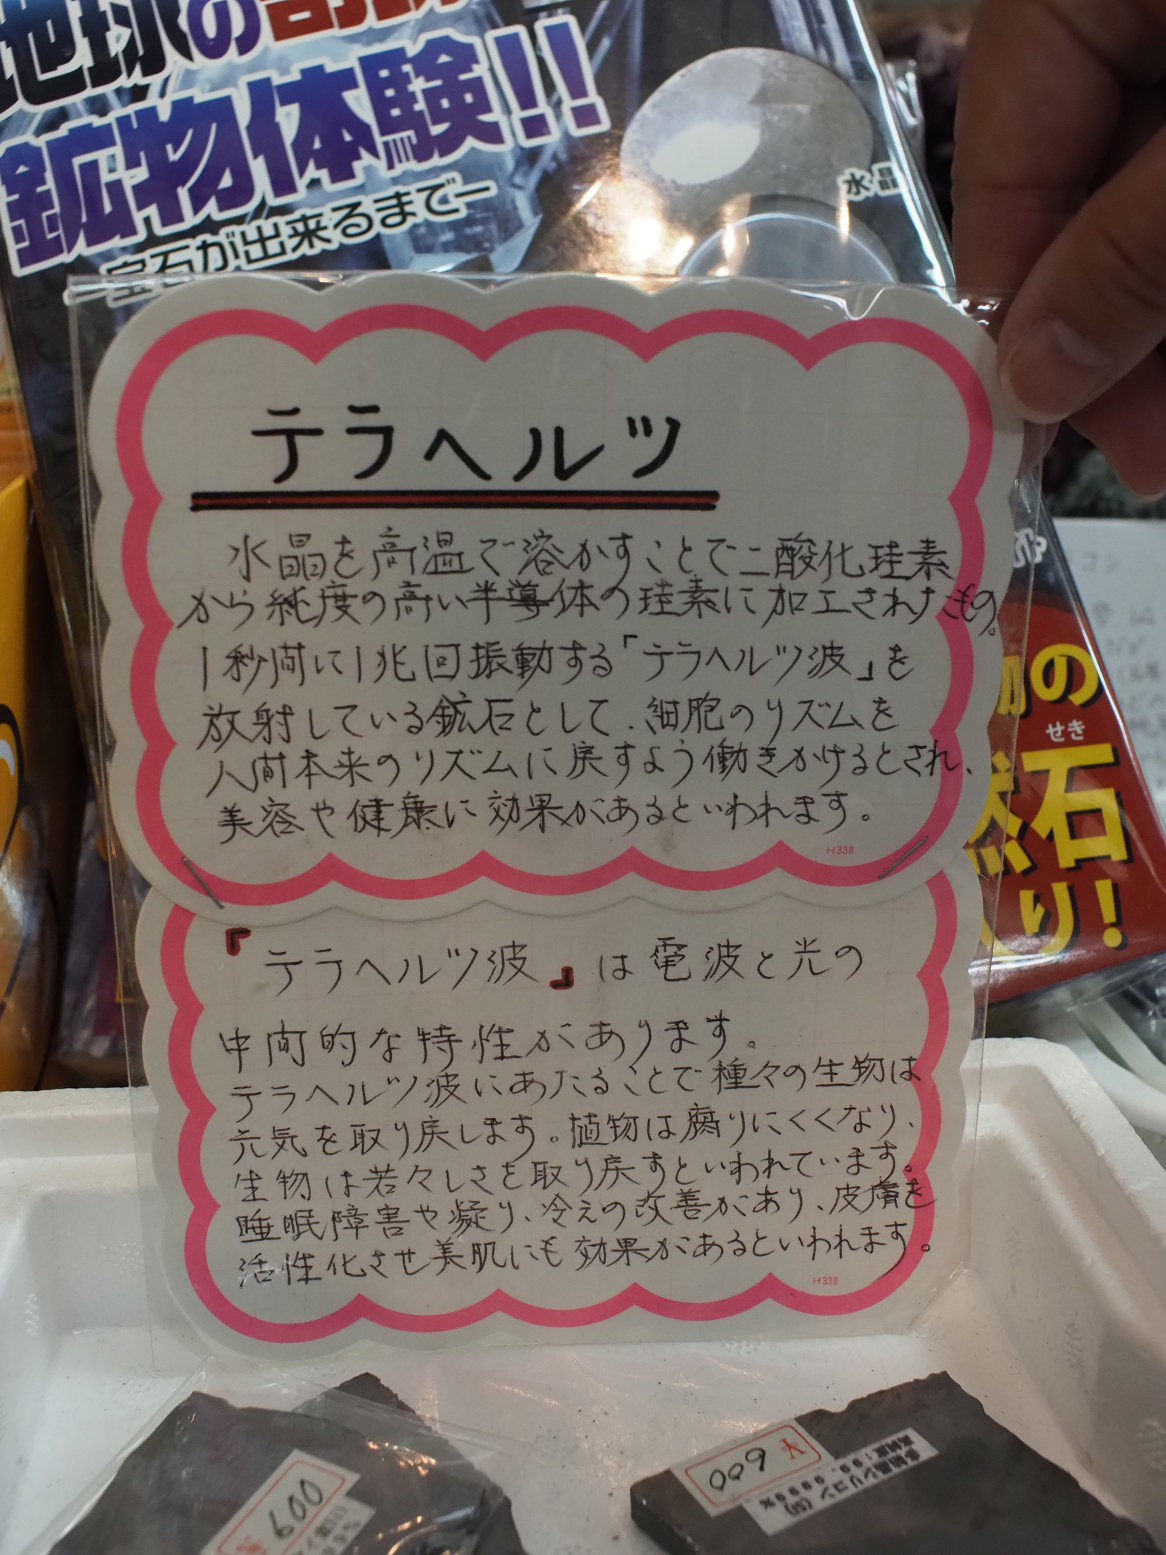 地球の
鉱物体験!!
宝石が出来るまでー
水晶
テラヘルツ
水晶を高温で溶かすことで二酸化珪素
から純度の高い半導体の珪素に加工されたもの。
1秒间に1兆回振動する「テラヘルツ波」を
放射している鉱石として、細胞のリズムを
人间本来のリズムに戻すよう働きかけるとされ、
美容や健康に効果があるといわれます。
H338
『テラヘルツ波』は電波と光の
中间的な特性があります。
テラヘルツ波にあたることで種々の生物は
元気を取り戻します。植物は腐りにくくなり、
生物は若々しさを取り戻すといわれています。
睡眠障害や凝り、冷えの改善があり、皮膚を
活性化させ美肌にも効果があるといわれます。
H338
の
せき
石
り!
600
600 A
多結晶シリコン(Si)